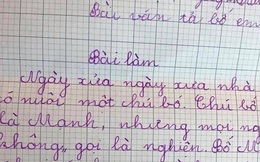 Bài văn tả bố em
Bài làm
Ngày xửa ngày xưa nhà
có nuôi một chú bò. Chú bò
là Mạnh, nhưng mọi ng
không gọi là nghiên. Bố M